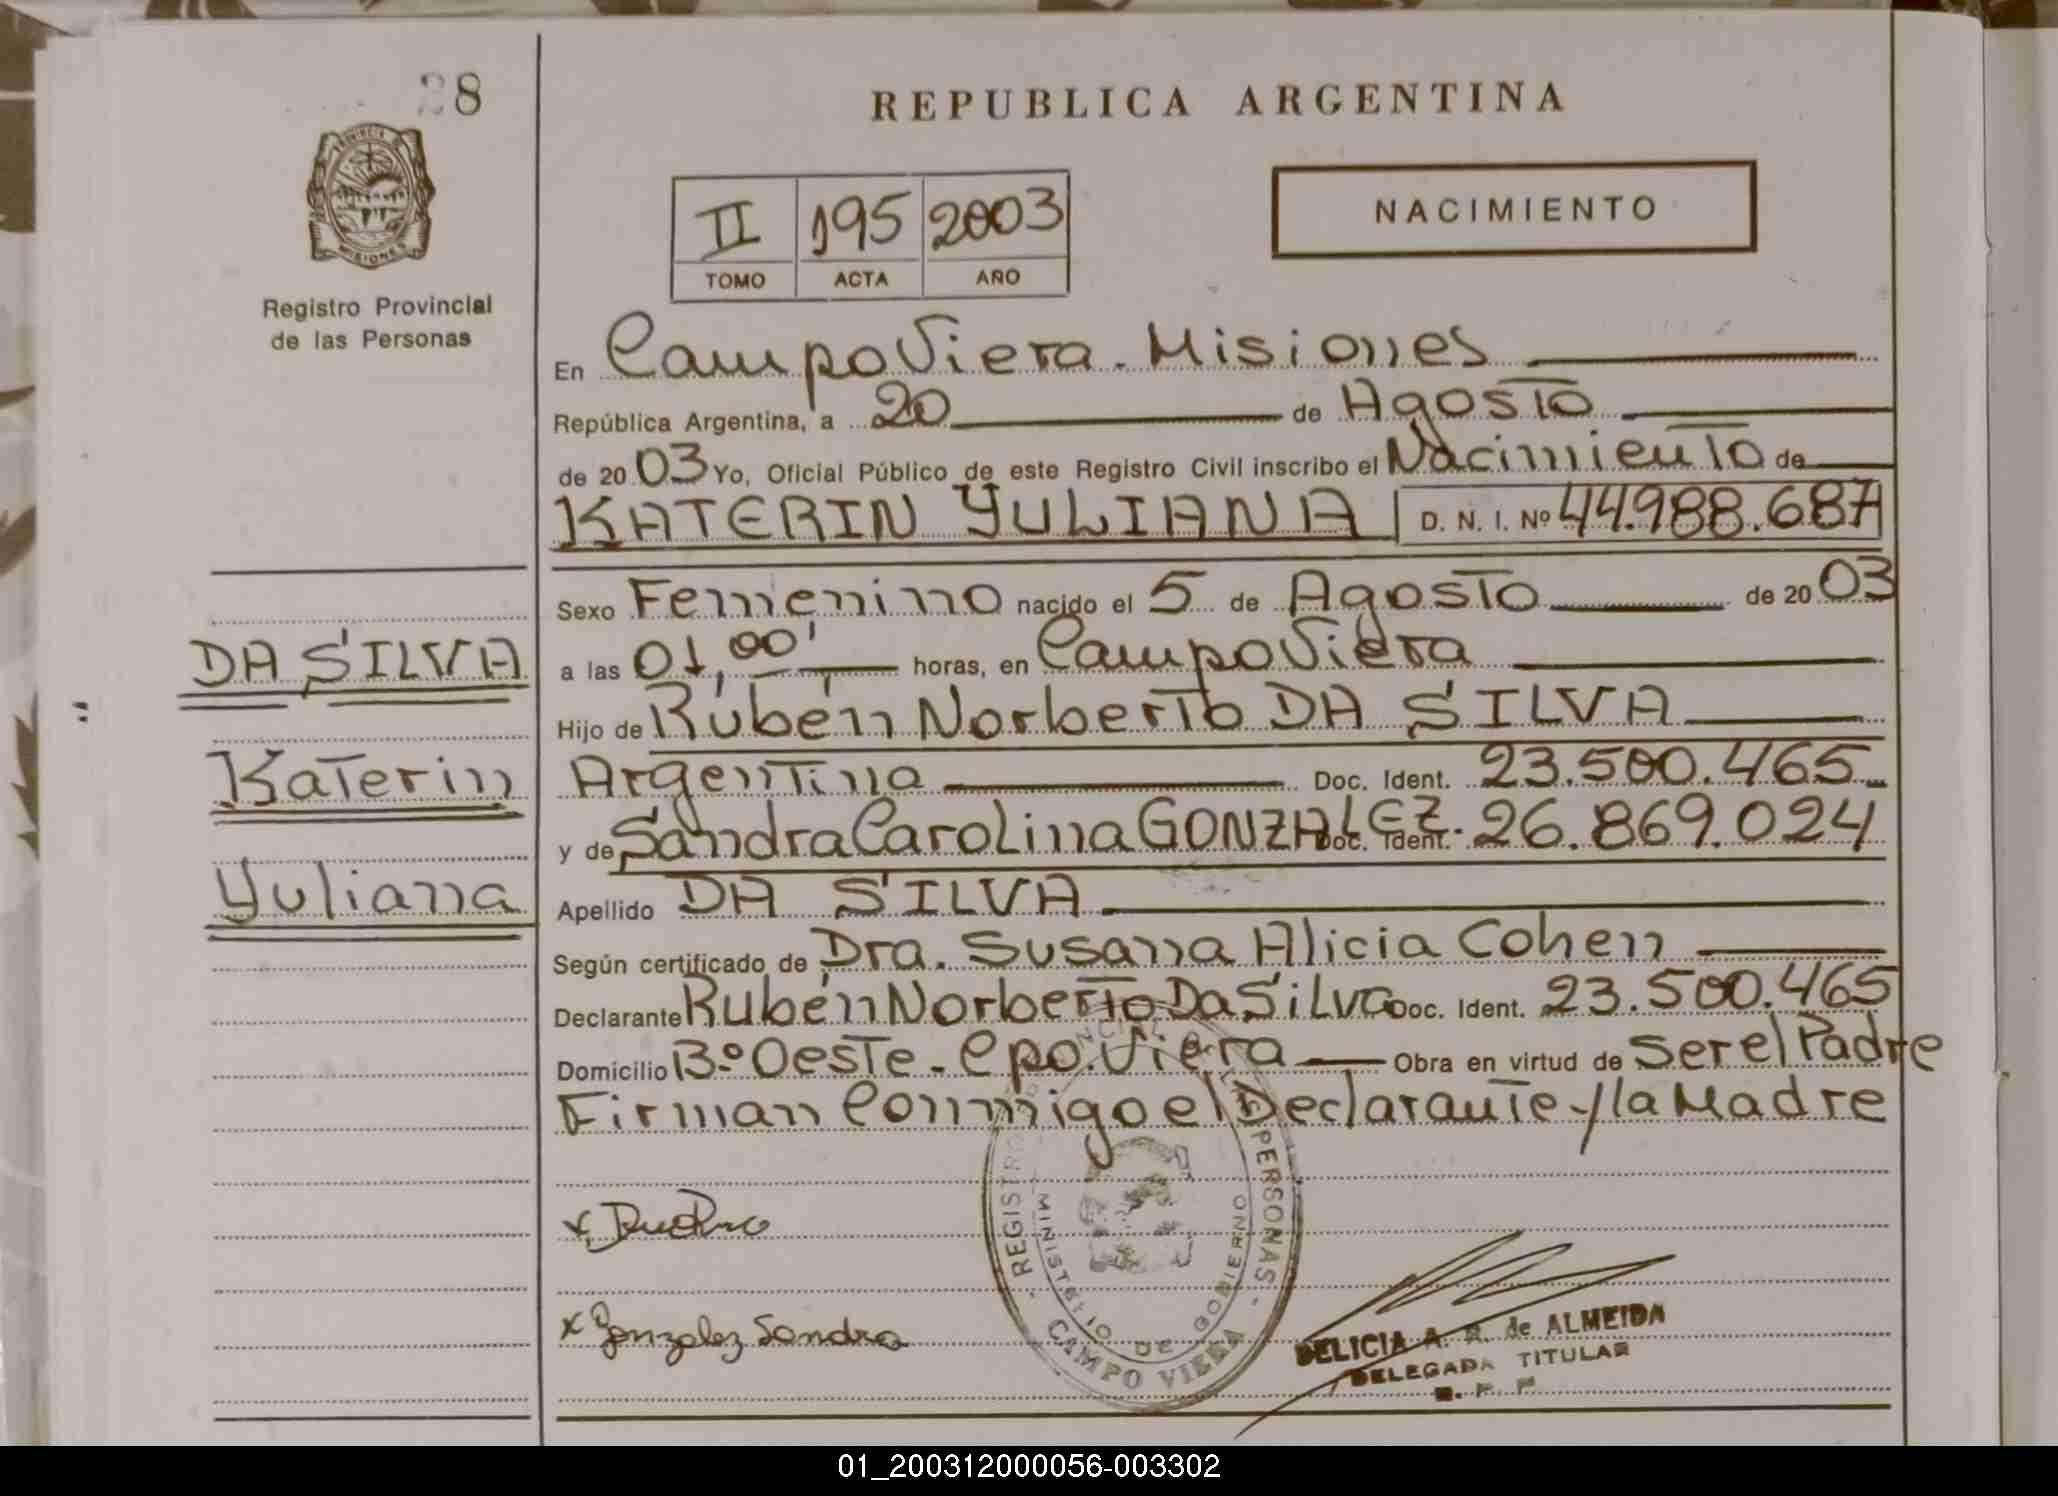 28
REPUBLICA ARGENTINA
PROVINCIA
MISIONES
Registro Provincial
de las Personas
II 195 2003
TOMO ACTA AÑO
NACIMIENTO
En Campo Viera. Misiones
República Argentina, a 20 de Agosto
de 2003 Yo, Oficial Público de este Registro Civil inscribo el Nacimiento de
KATERIN YULIANA D. N. I. Nº 44.988.687
Sexo Femenino nacido el 5 de Agosto de 2003
DA SILVA
a las 01,00' horas, en Campo Viera
Hijo de Rúbén Norberto DA SILVA
Katerin
Argentina Doc. Ident. 23.500.465
y de Sandra Carolina GONZALEZ. Doc. Ident. 26.869.024
Yuliana
Apellido DA SILVA
Según certificado de Dra. Susana Alicia Cohen
Declarante Rubén Norberto Da Silva Doc. Ident. 23.500.465
Domicilio Bº Oeste - Cpo. Viera Obra en virtud de ser el Padre
Firman Conmigo el Declarante y la Madre
REGISTRO PERSONAS
MINISTERIO DE GOBIERNO
CAMPO VIERA
x Gonzalez Sandra
DELICIA A. de ALMEIDA
DELEGADA TITULAR
01_200312000056-003302